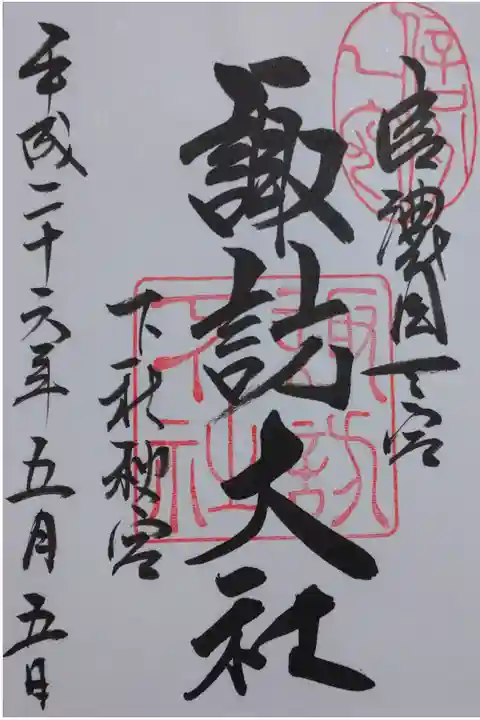 信濃国一宮
諏訪大社
下社秋宮
平成二十六年五月五日
諏訪
下社